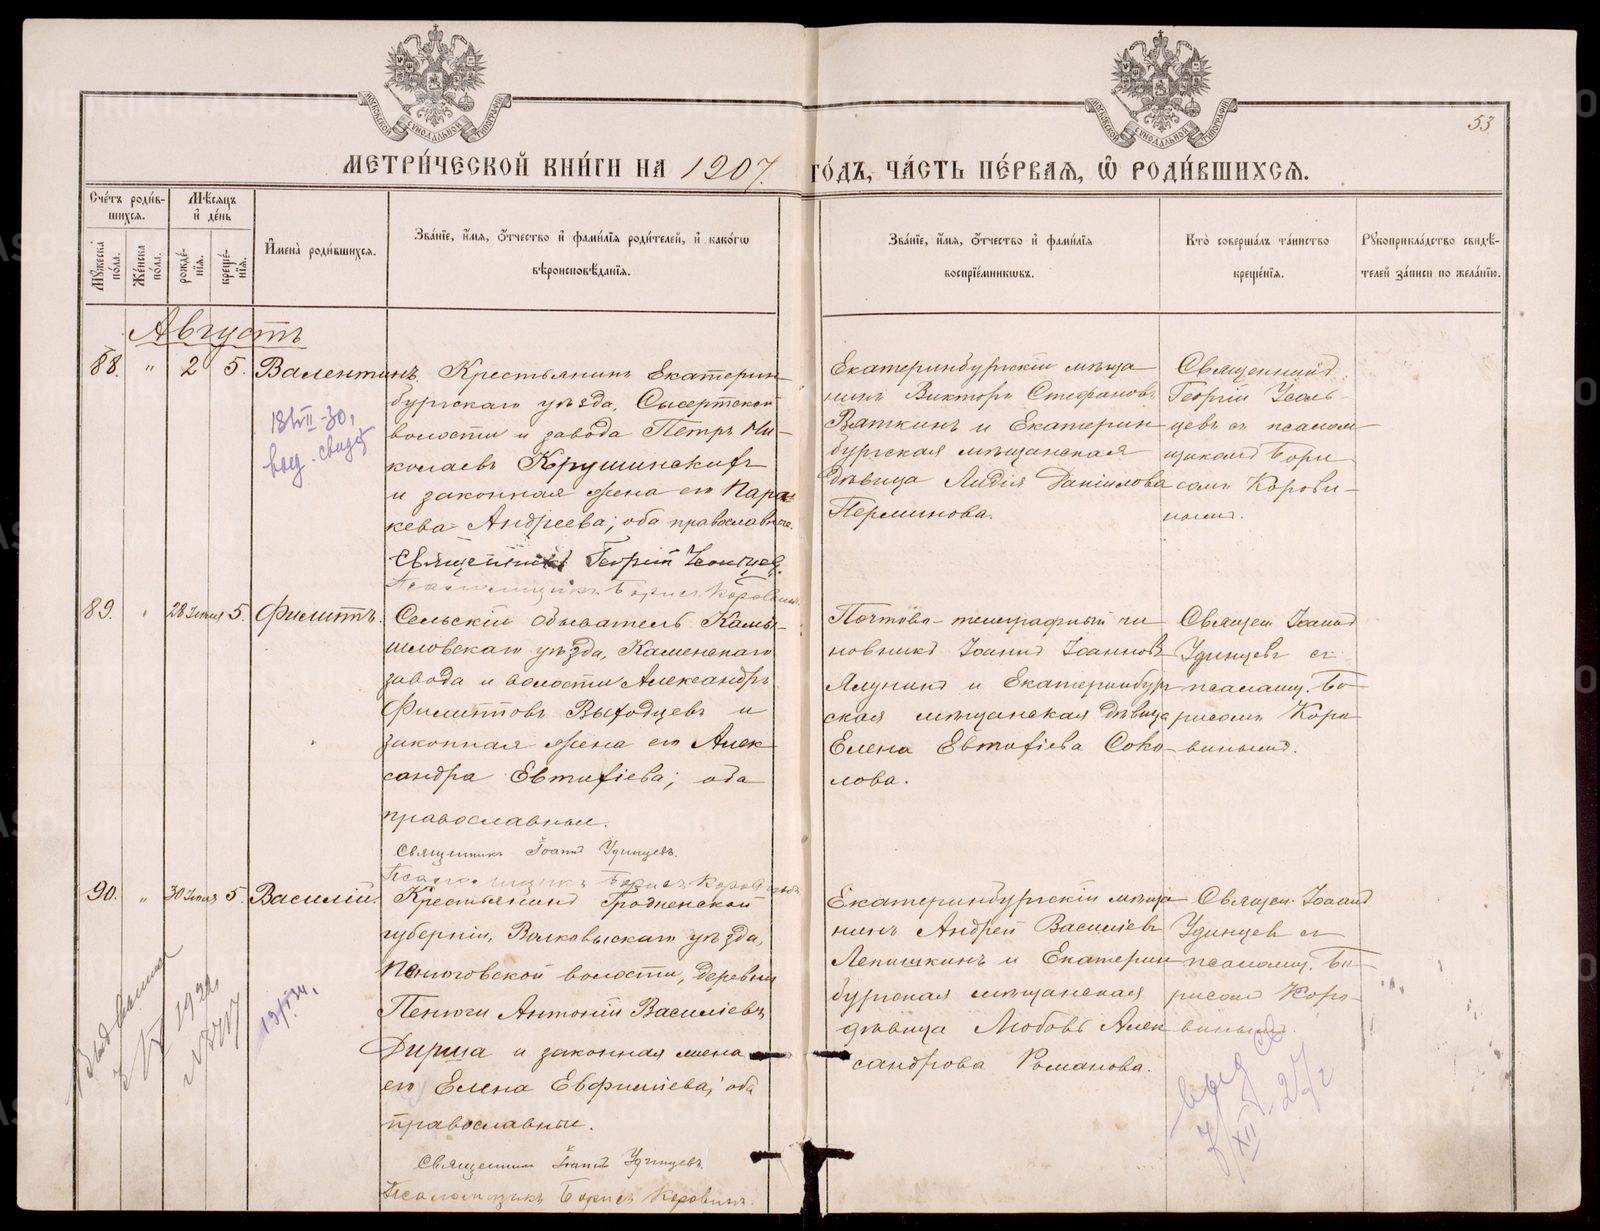 МОСКОВСКОЙ СУНОДАЛЬНОЙ ТИПОГРАФІИ
МОСКОВСКОЙ СУНОДАЛЬНОЙ ТИПОГРАФІИ
53
МЕТРИ́ЧЕСКОЙ КНИ́ГИ НА 1907. ГО́ДЪ, ЧА́СТЬ ПЕ́РВАѦ, Ѡ РОДИ́ВШИХСѦ.
Сче́тъ роди́в-
шихсѧ.
Мѣ́сѧцъ
и҆ де́нь
Мꙋ́жеска
по́ла.
Же́нска
по́ла.
рожде́-
нїѧ.
креще́-
нїѧ.
И҆мена̀ роди́вшихсѧ.
Зва́нїе, и҆́мѧ, ѻ҆́тчество и҆ фами́лїѧ роди́телей, и҆ како́гѡ
вѣроисповѣ́данїѧ.
Зва́нїе, и҆́мѧ, ѻ҆́тчество и҆ фами́лїѧ
воспрїе́мникѡвъ.
Кто̀ соверша́лъ та́инство
креще́нїѧ.
Рꙋкоприкла́дство свидѣ́-
телей за́писи по жела́нїю.
Августъ
88. " 2 5. Валентинъ.
Крестьянинъ Екатерин-
бургскаго уѣзда, Сысертской
волости и завода Петръ Ни-
колаевъ Крушинскихъ
и законная жена его Парас
кева Андреева; оба православные.
Священникъ Георгій
Псаломщикъ Борисъ Коровинъ.
выд. свид
Екатеринбургскій мѣща
нинъ Викторъ Стефановъ
Вяткинъ и Екатерин
бургская мѣщанская
дѣвица Лидія Даніилова
Перминова.
Священникъ
Георгій
цевъ съ псалом
щикомъ Бори
сомъ Корови-
нымъ.
89. " 28 Іюля 5. Филиппъ.
Сельскій обыватель Камы-
шловскаго уѣзда, Каменскаго
завода и волости Александръ
Филипповъ Выходцевъ и
законная жена его Алек
сандра Евтихіева; оба
православные.
Священникъ Іоаннъ Удинцевъ.
Псаломщикъ Борисъ Коровинъ
Почтово-телеграфный чи
новникъ Іоаннъ Іоанновъ
Ялунинъ и Екатеринбур
ская мѣщанская дѣвица
Елена Евтихіева Соко-
лова.
Священ. Іоаннъ
Удинцевъ съ
псаломщ. Бо
рисомъ Коро
винымъ.
90. " 30 Іюля 5 Василій.
Крестьянинъ Гродненской
губерніи, Волковыскаго уѣзда,
Пенюговской волости, деревни
Пенюги Антоній Василіевъ
Дирша и законная жена
его Елена Евфиміева; оба
православные.
Священникъ Іоаннъ Удинцевъ
Псаломщикъ Борисъ Коровинъ.
19/I 34.
Екатеринбургскій мѣща
нинъ Андрей Василіевъ
Лепишкинъ и Екатерин
бургская мѣщанская
дѣвица Любовь Алек
сандрова Романова.
Священ. Іоаннъ
Удинцевъ съ
псаломщ. Бо-
рисомъ Коро-
винымъ.
выд св
7/XII 27 г